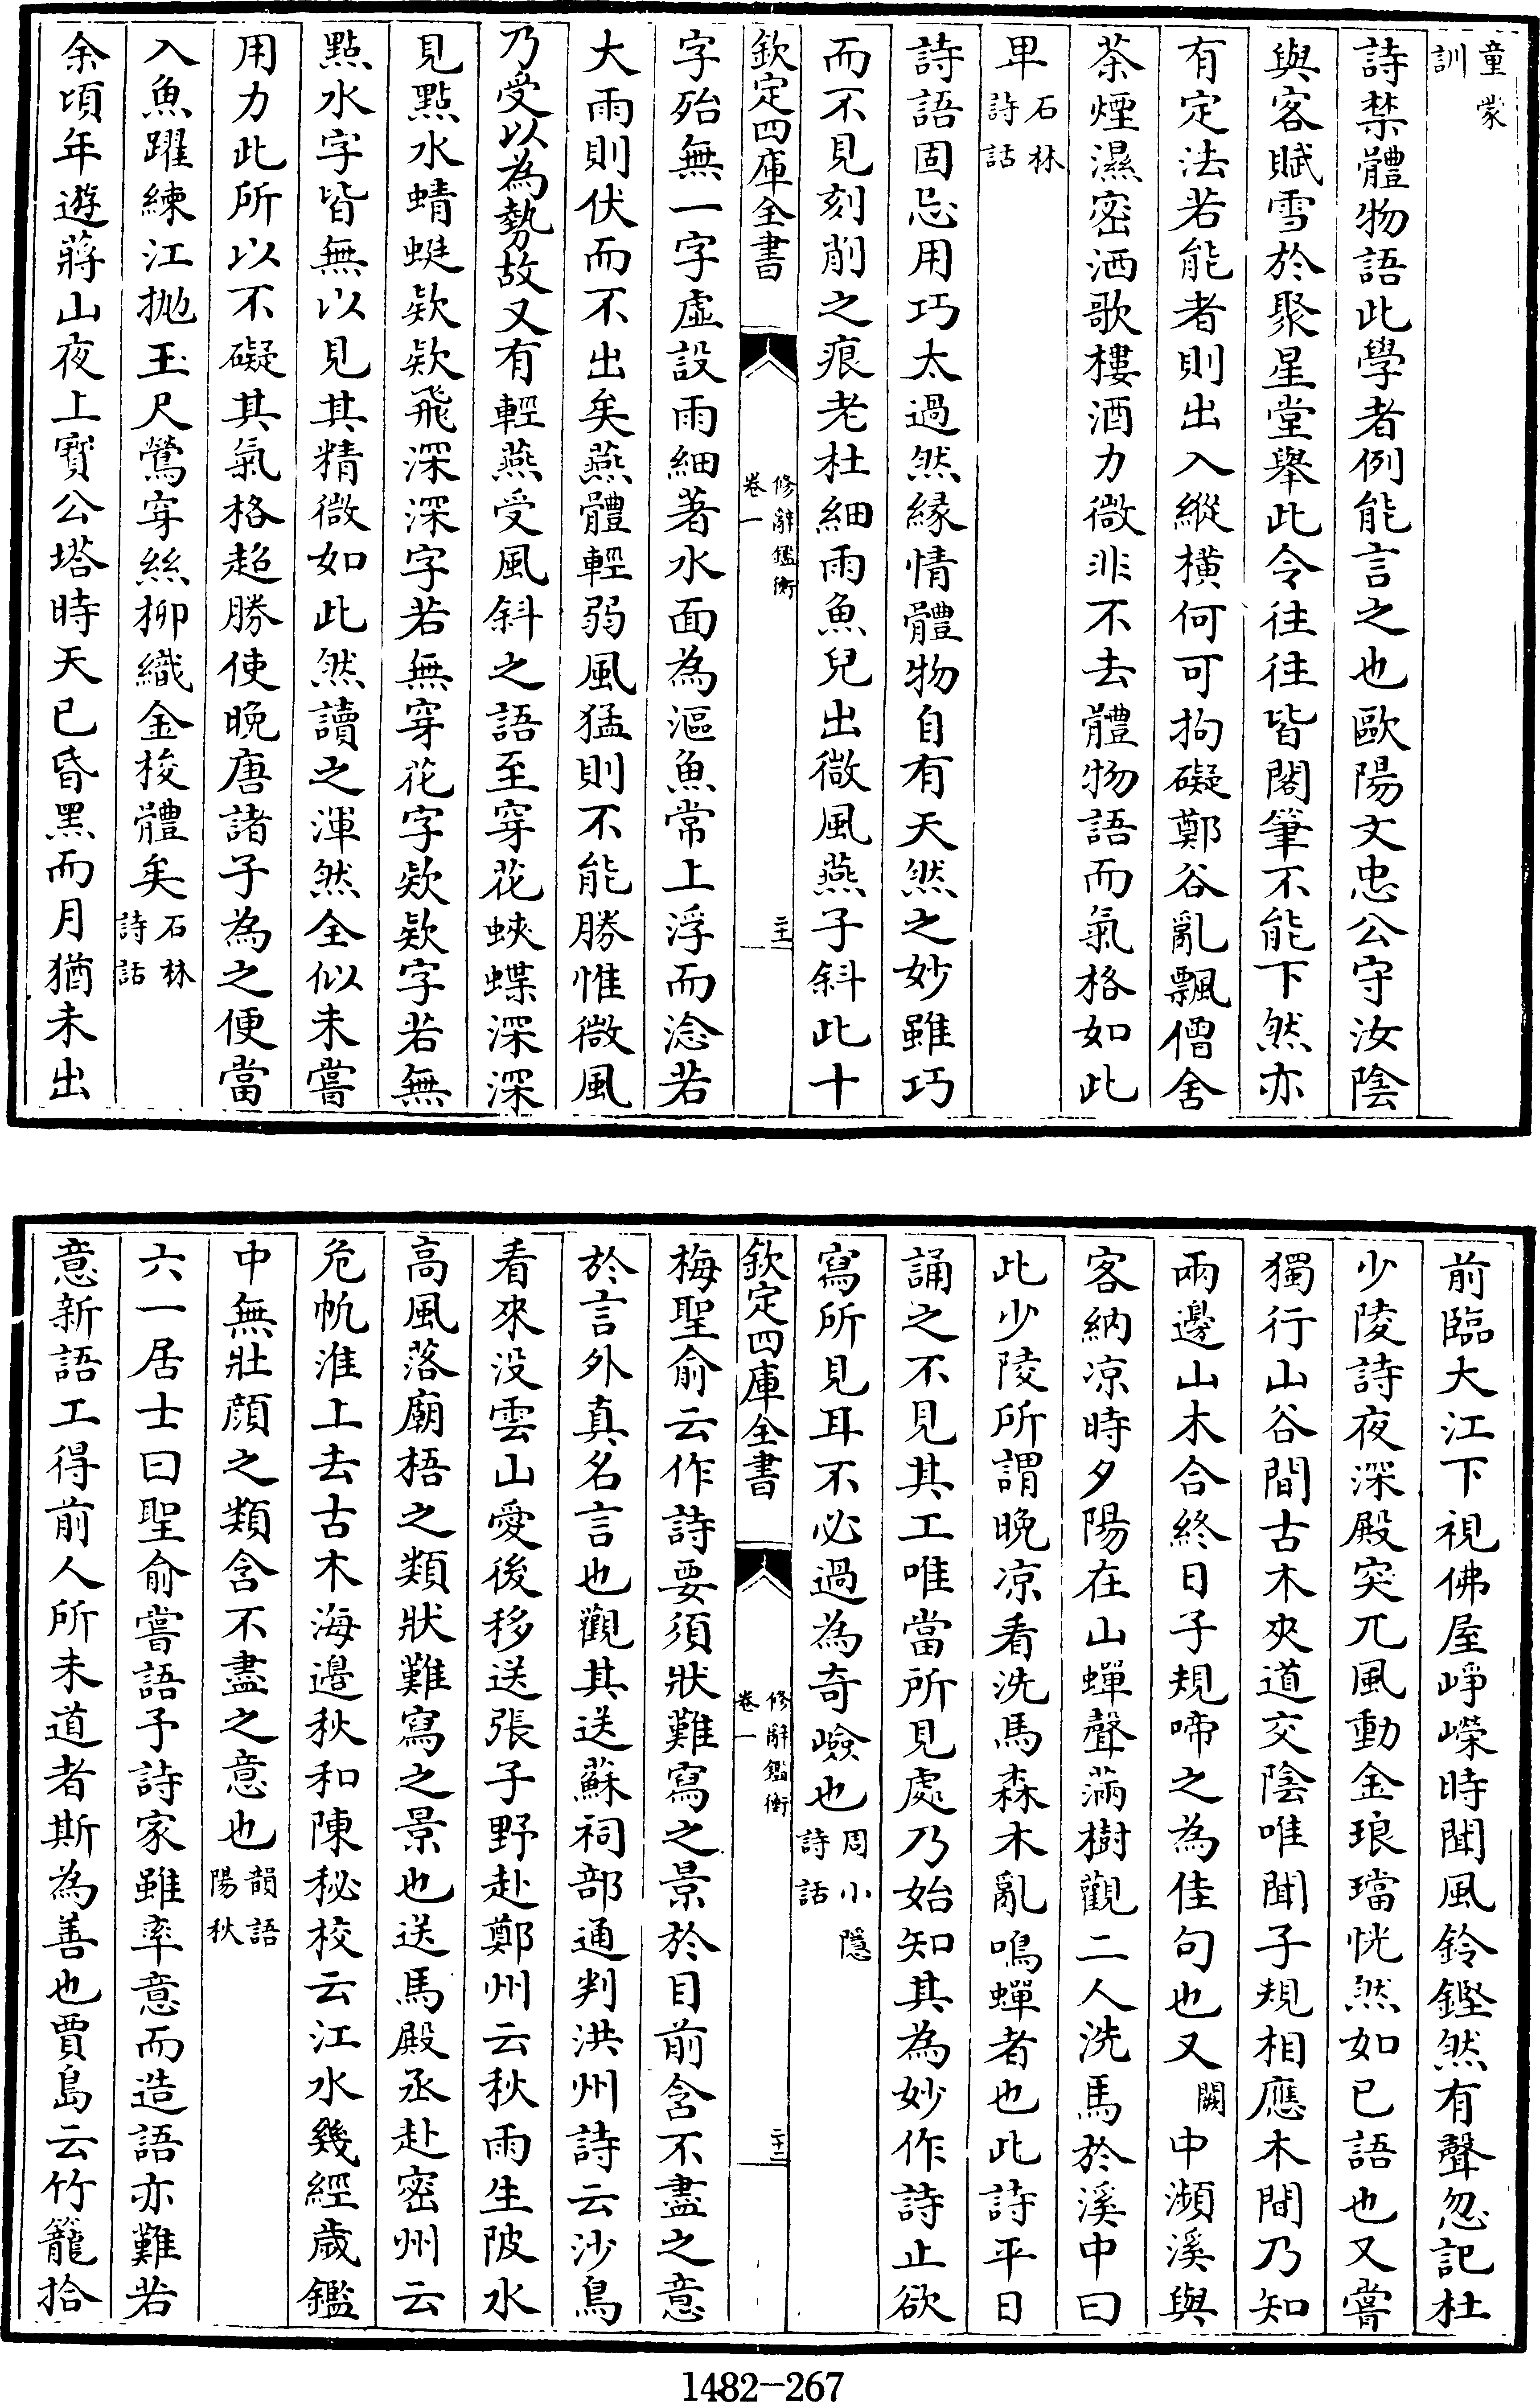 童蒙
訓
詩禁體物語此學者例能言之也歐陽文忠公守汝陰
與客賦雪於聚星堂舉此令往往皆閣筆不能下然亦
有定法若能者則出入縱橫何可拘礙鄭谷亂飄僧舍
茶煙濕密洒歌樓酒力微非不去體物語而氣格如此
卑石林
詩話
詩語固忌用巧太過然緣情體物自有天然之妙雖巧
而不見刻削之痕老杜細雨魚兒出微風燕子斜此十
欽定四庫全書
修辭鑑衡
卷一
二十一
字殆無一字虛設雨細著水面為漚魚常上浮而淰若
大雨則伏而不出矣燕體輕弱風猛則不能勝惟微風
乃受以為勢故又有輕燕受風斜之語至穿花蛺蝶深深
見點水蜻蜓欵欵飛深深字若無穿花字欵欵字若無
點水字皆無以見其精微如此然讀之渾然全似未嘗
用力此所以不礙其氣格超勝使晚唐諸子為之便當
入魚躍練江拋玉尺鶯穿絲柳織金梭體矣石林
詩話
余頃年遊蔣山夜上寳公塔時天已昏黑而月猶未出
前臨大江下視佛屋崢嶸時聞風鈴鏗然有聲忽記杜
少陵詩夜深殿突兀風動金琅璫恍然如已語也又嘗
獨行山谷間古木夾道交陰唯聞子規相應木間乃知
兩邊山木合終日子規啼之為佳句也又闕中瀕溪與
客納凉時夕陽在山蟬聲滿樹觀二人洗馬於溪中曰
此少陵所謂晚凉看洗馬森木亂鳴蟬者也此詩平日
誦之不見其工唯當所見處乃始知其為妙作詩止欲
寫所見耳不必過為奇嶮也周小隱
詩話
欽定四庫全書
修辭鑑衡
卷一
二十二
梅聖俞云作詩要須狀難寫之景於目前含不盡之意
於言外真名言也觀其送蘇祠部通判洪州詩云沙鳥
看來没雲山愛後移送張子野赴鄭州云秋雨生陂水
高風落廟梧之類狀難寫之景也送馬殿丞赴密州云
危帆淮上去古木海邊秋和陳秘校云江水幾經歲鑑
中無壯顔之類含不盡之意也韻語
陽秋
六一居士曰聖俞嘗語予詩家雖率意而造語亦難若
意新語工得前人所未道者斯為善也賈島云竹籠拾
1482-267